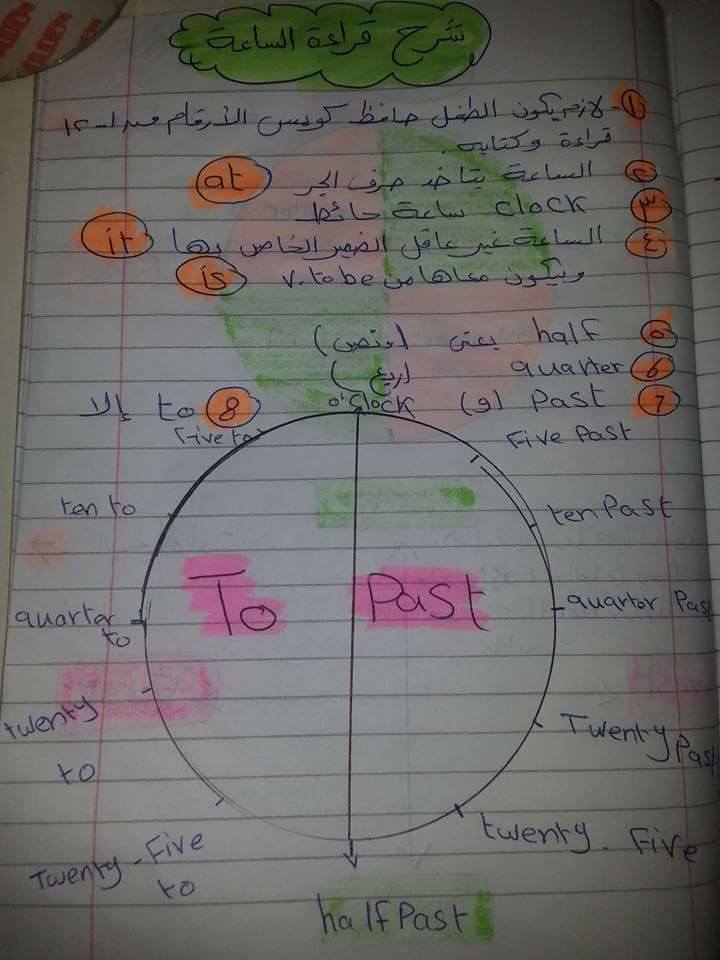 شرح قراءة الساعة
١- لازم يكون الطفل حافظ كويس الأرقام من ١-١٢
قراءة وكتابه.
٢ الساعة يتاخد حرف الجر at
٣ clock ساعة حائط
٤ الساعة غير عاقل الضمير الخاص بها it
وبيكون معاها من v. to be is
٥ half بمعنى (ونص)
6 quarter (ربع)
7 Past (و) 8 to إلا
o'clock
Five to
Five Past
ten to
ten Past
To
Past
quarter to
quarter Past
twenty to
Twenty Past
Twenty-Five to
twenty-Five
half Past